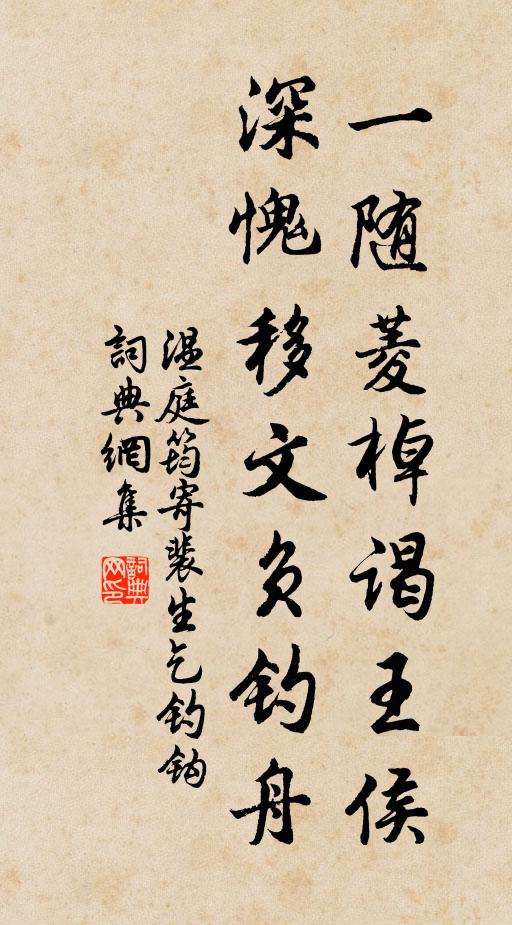 一随菱棹谒王侯
深愧移文负钓舟
温庭筠寄裴生乞钓钩
詞典網集
詞典网印